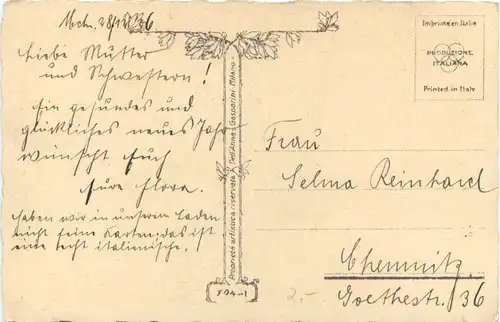 Mch. 28/12 26
Liebe Mutter
und Schwestern!
Ein gesundes und
glückliches neues Jahr
wünscht Euch
Eure Flora.
Haben wir in unserem Laden
nicht feine Karten; das ist
eine echt italienische.
Proprietà artistica riservata Dell'Anna & Gasparini-Milano-
704-1
Imprimé en Italie
PRODUZIONE
ITALIANA
Printed in Italy
Frau
Selma Reinhard
Chemnitz
Goethestr. 36
2.-